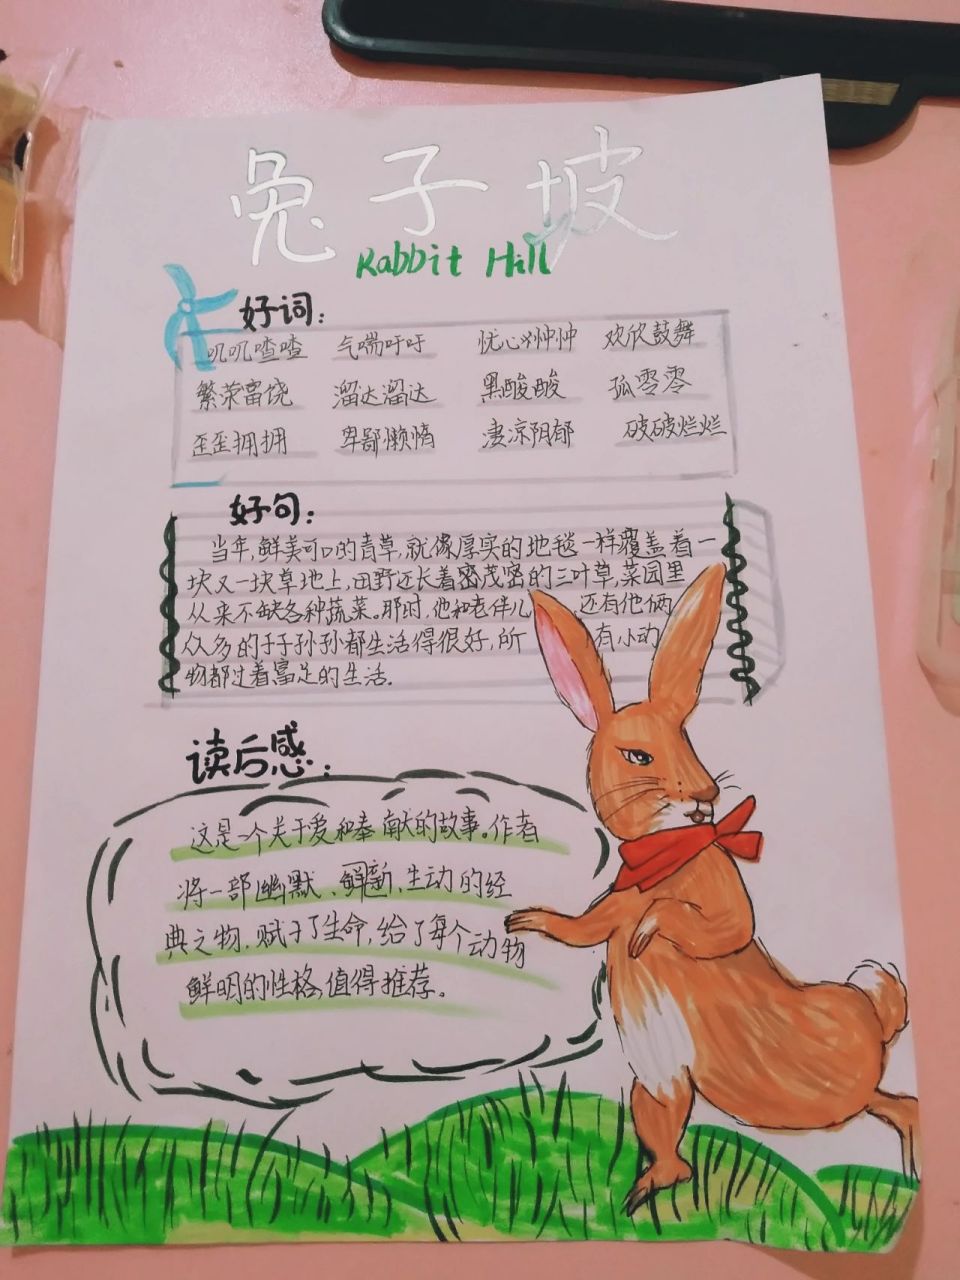 兔子坡
Rabbit Hill
好词：
叽叽喳喳 气喘吁吁 忧心忡忡 欢欣鼓舞
繁荣富饶 溜达溜达 黑酸酸 孤零零
歪歪拥拥 卑鄙懒惰 凄凉阴郁 破破烂烂
好句：
当年,鲜美可口的青草,就像厚实的地毯一样覆盖着一
块又一块草地上,田野还长着密茂密的三叶草,菜园里
从来不缺各种蔬菜。那时,他和老伴儿,还有他俩
众多的子子孙孙都生活得很好,所有小动
物都过着富足的生活.
读后感：
这是一个关于爱和奉献的故事。作者
将一部幽默、鲜新、生动的经
典之物,赋予了生命,给了每个动物
鲜明的性格,值得推荐。